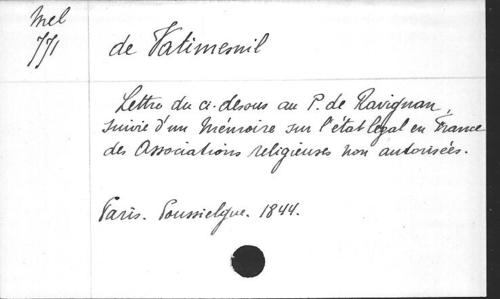 Mel
771
de Vatimesnil
Lettre du ci-dessus au P. de Ravignan,
suivie d'un Mémoire sur l'état légal en France
des Associations religieuses non autorisées.
Paris. Poussielgue. 1844.